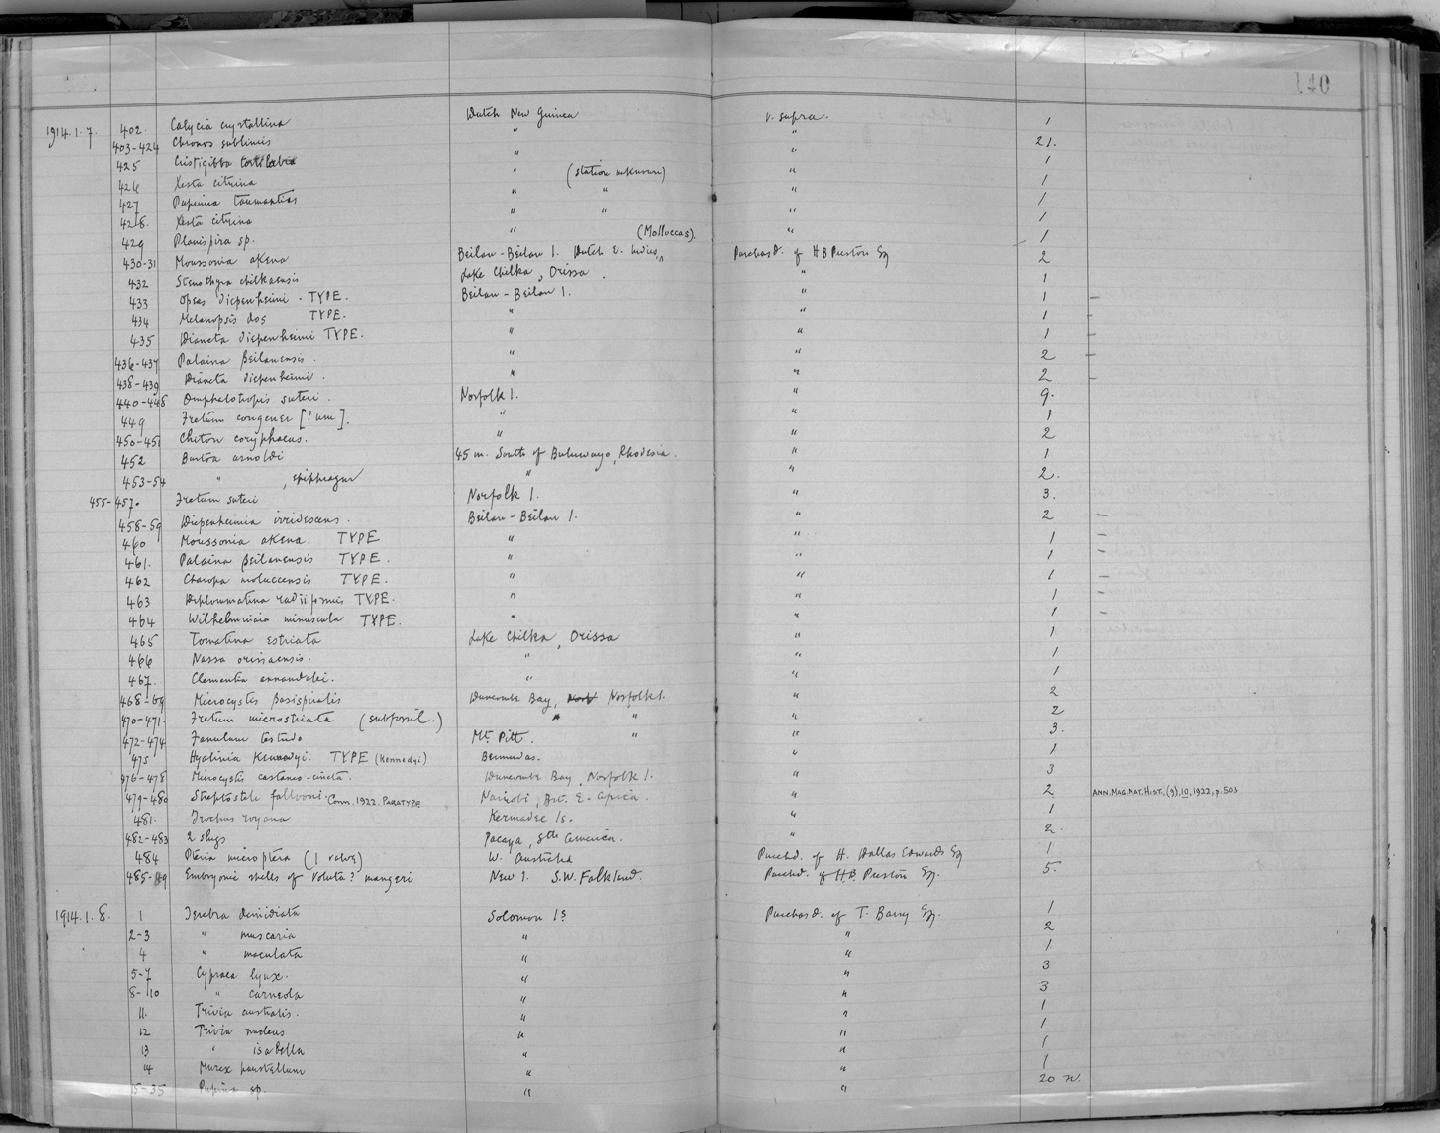 140
1914.1.7. 402. Calycia crystallina Dutch New Guinea v. supra. 1
403-424 Chronos sublimis " " 21.
425 Cristigibba tortilabia " " 1
426 Xesta citrina " (Station " 1
427 Papuina " " " 1
428. Xesta citrina " " " 1
429 Planispira sp. " (Molluccas). " 1
430-31 Moussonia akena Beilan-Beilan I. Dutch E. Indies Purchasd. of H B Preston Esq 2
432 Stenothyra chilkaensis Lake Chilka, Orissa. " 1
433 Opeas diepenheimi - TYPE. Beilan-Beilan I. " 1 -
434 Melanopsis dos TYPE. " " 1 -
435 Diancta diepenheimi TYPE. " " 1 -
436-437 Palaina beilanensis. " " 2 -
438-439 Diancta diepenheimi. " " 2 -
440-448 Omphalotropis suteri. Norfolk I. " 9.
449 Fretum congener ['um]. " " 1
450-451 Chiton coryphaeus. " " 2
452 Burtoa arnoldi 45 m. South of Buluwayo, Rhodesia. " 1
453-54 " , epiphragm " " 2.
455-457. Fretum suteri Norfolk I. " 3.
458-59 Diepenheimia irridescens. Beilan-Beilan I. " 2 -
460 Moussonia akena TYPE " " 1 -
461. Palaina beilanensis TYPE. " " 1 -
462 Charopa moluccensis TYPE. " " 1 -
463 Diplommatina radiiformis TYPE. " " 1 -
464 Wilhelminaia minuscula TYPE. " " 1 -
465 Tornatina estriata Lake Chilka, Orissa " 1
466 Nassa orissaensis. " " 1
467. Clementia annandalei. " " 1
468-69 Microcystis basispiralis Duncombe Bay, Norf Norfolk I. " 2
470-471. Fretum microstriata (subfossil.) " " " 2
472-474 Fanulum testudo Mt. Pitt. " " 3.
475 Hyalinia Kennedyi. TYPE (Kennedyi) Bermudas. " 1
476-478 Microcystis castaneo-cincta. Duncombe Bay, Norfolk I. " 3
479-480 Streptostele Conn. 1922. PARATYPE Nairobi, Brt. E. Africa. " 2 ANN. MAG. NAT. HIST., (9), 10, 1922, p. 503
481. Trochus royana Kermadec Is. " 1
482-483 2 slugs Pacaya, Sth America. " 2.
484 Pteria microptera (1 valve) W. Australia Purchd. of H. Dallas Edwards Esq 1
485-89 Embryonic shells of Voluta? mangeri New I. S.W. Falkland. Purchd. of H.B. Preston Esq. 5.
1914.1.8. 1 Terebra dimidiata Solomon Is Purchasd. of T. Barry Esq. 1
2-3 " muscaria " " 2
4 " maculata " " 1
5-7 Cypraea lynx. " " 3
8-10 " carneola " " 3
11. Trivia australis. " " 1
12 Trivia nucleus " " 1
13 " isabella " " 1
14 Murex haustellum " " 1
15-35 Papuina sp. " " 20 n.